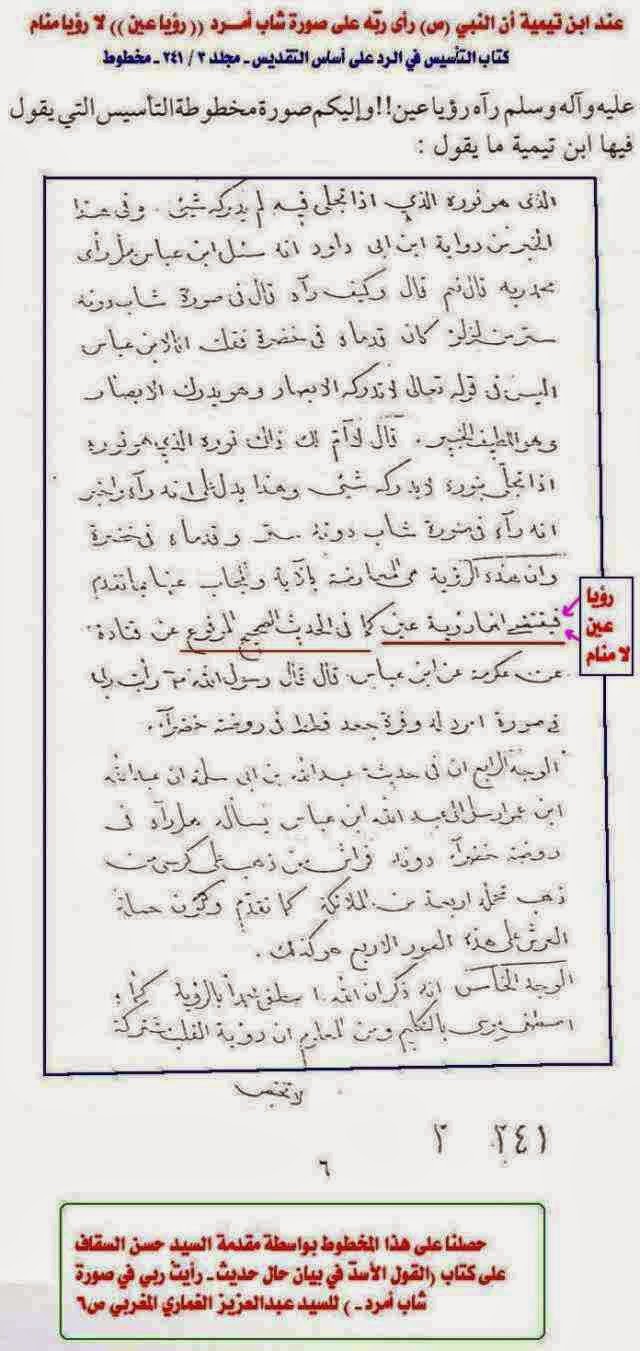 عند ابن تيمية أن النبي (ص) رأى ربّه على صورة شاب أمرد (( رؤيا عين )) لا رؤيا منام
كتاب التأسيس في الرد على أساس التقديس - مجلد ٣ / ٢٤١ - مخطوط
عليه وآله وسلم رآه رؤيا عين!! وإليكم صورة مخطوطة التأسيس التي يقول
فيها ابن تيمية ما يقول :
الذي هو نوره الذي اذا تجلى فيه لم يدركه شئ . وفى هذا
الخبر من رواية ابن ابى داود انه سئل ابن عباس هل رأى
محمد ربه قال نعم قال وكيف رآه قال فى صورة شاب دونه
ستر من لؤلؤ كان قدماه فى خضرة فقلت انا لابن عباس
اليس فى قوله تعالى لا تدركه الابصار وهو يدرك الابصار
وهو اللطيف الخبير . قال لا أم لك ذاك نوره الذي هو نوره
اذا تجلى بنوره لا يدركه شئ وهذا يدل على انه رآه واخبر
انه رآه فى صورة شاب دونه ستر وقدماه فى خضرة
وان هذه الرؤية هى المعارضة بالآية والمجاب عنها بما تقدم
فيقتضى انها رؤية عين كما فى الحديث الصحيح المرفوع عن قتادة
عن عكرمة عن ابن عباس قال قال رسول الله رأيت ربى
فى صورة امرد له وفرة جعد قطط فى روضة خضرآء .
الوجه الرابع ان فى حديث عبد الله بن ابى سلمة ان عبد الله
ابن عمر ارسل الى عبد الله ابن عباس يسأله هل رآه فى
روضة خضرآء دونه فراش من ذهب على كرسى من
ذهب تحمله اربعة من الملائكة كما تقدم وكون حملة
العرش على هذه الصور الاربع هو كذلك .
الوجه الخامس انه ذكر ان الله اصطفى محمدا بالرؤية كما
اصطفى موسى بالتكليم ومن المعلوم ان رؤية القلب مشتركة
لا تختص
رؤيا
عين
لا منام
٢٤١ ٣
٦
حصلنا على هذا المخطوط بواسطة مقدمة السيد حسن السقاف
على كتاب (القول الأسد في بيان حال حديث - رأيت ربي في صورة
شاب أمرد - ) للسيد عبدالعزيز الغماري المغربي ص٦